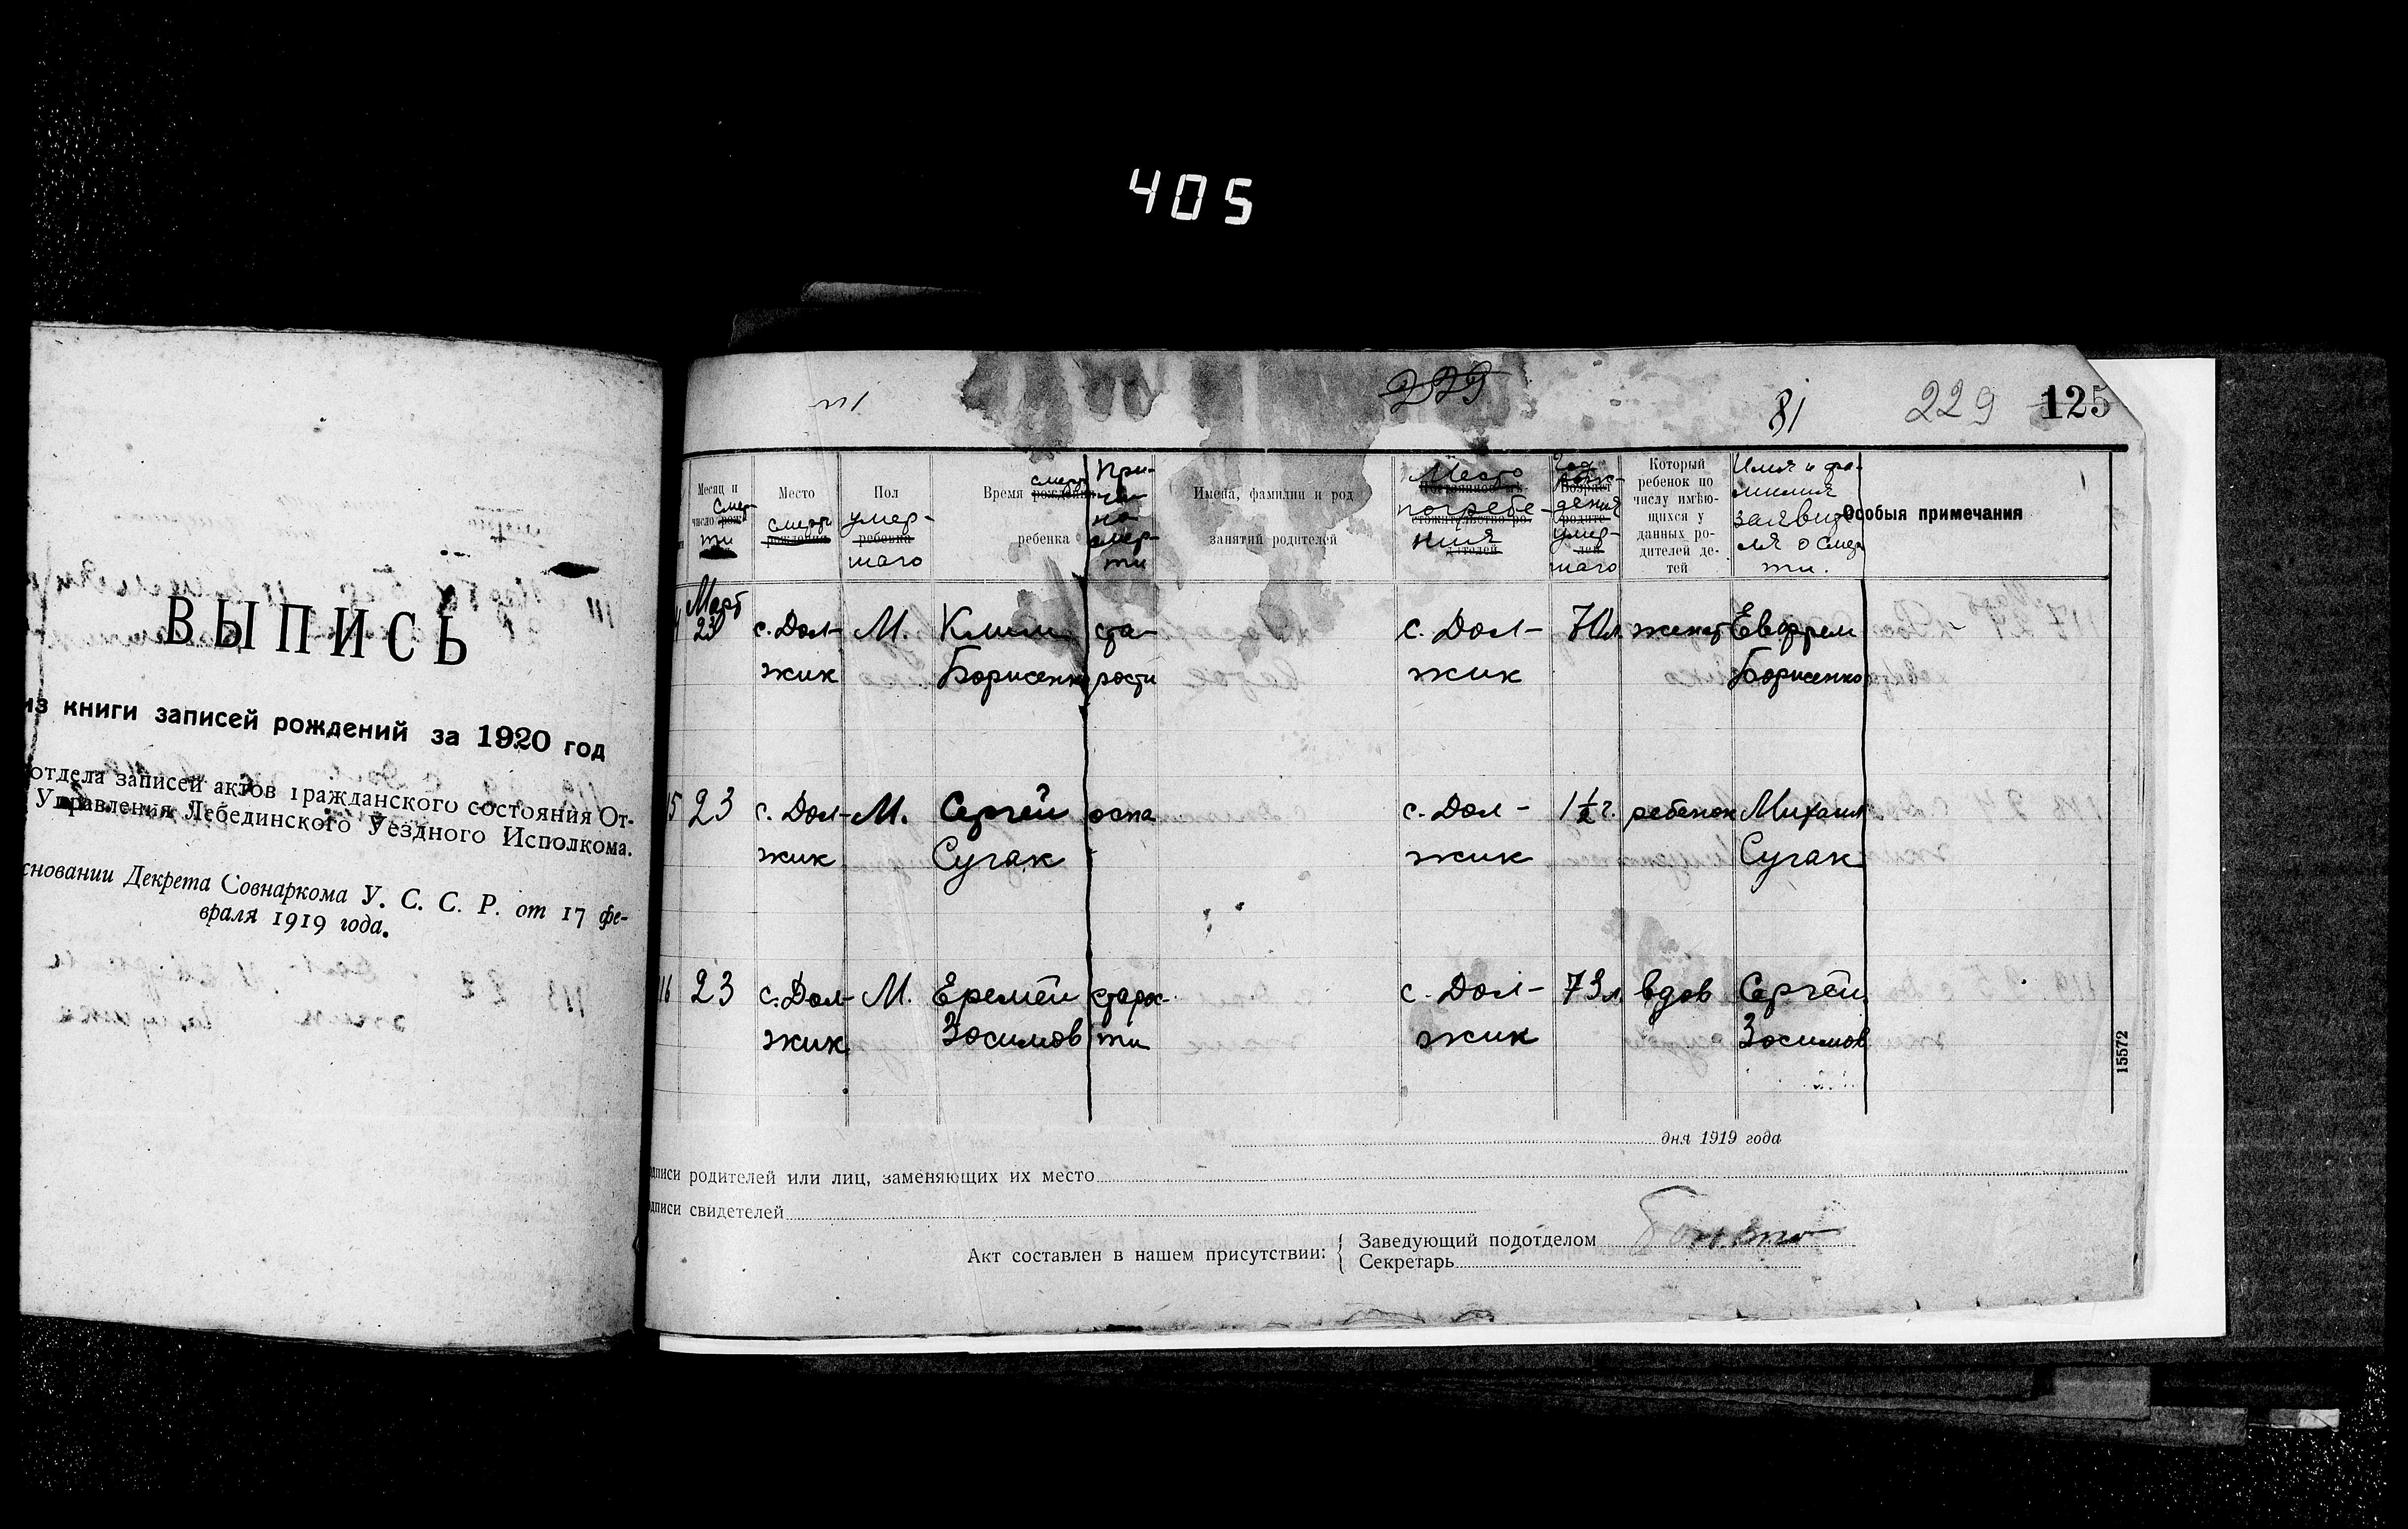 405
ВЫПИСЬ
из книги записей рождений за 1920 год
отдела записей актов гражданского состояния От-
Управления Лебединского Уездного Исполкома.
сновании Декрета Совнаркома У. С. С. Р. от 17 фе-
враля 1919 года.
229
81
229 125
Месяц и число рож смер-ти
Место рождения смерти
Пол ребенка умер-шаго
Время рождения смерти ребенка
При-чи-на смер-ти
Имена, фамилии и род занятий родителей
Место погребе-ния
Год рож-дения умер-шаго
Который ребенок по числу имѣю-щихся у данных ро-дителей де-тей
Имя и фа-милия заявите-ля о смер-ти.
Особыя примечания
Март
23 с. Дол- М. Клим ста- с. Дол- 70 л. женат Евфрем
жик Борисенко рости жик Борисенко
15 23 с. Дол- М. Сергей оспа с. Дол- 1½ г. ребенок Михаил
жик Сугак жик Сугак
116 23 с. Дол- М. Еремей старос- с. Дол- 73 л. вдов Сергей
жик Зосимов ти жик Зосимов
15572
дня 1919 года
дписи родителей или лиц, заменяющих их место
дписи свидетелей
Акт составлен в нашем присутствии: { Заведующий подотделом
Секретарь